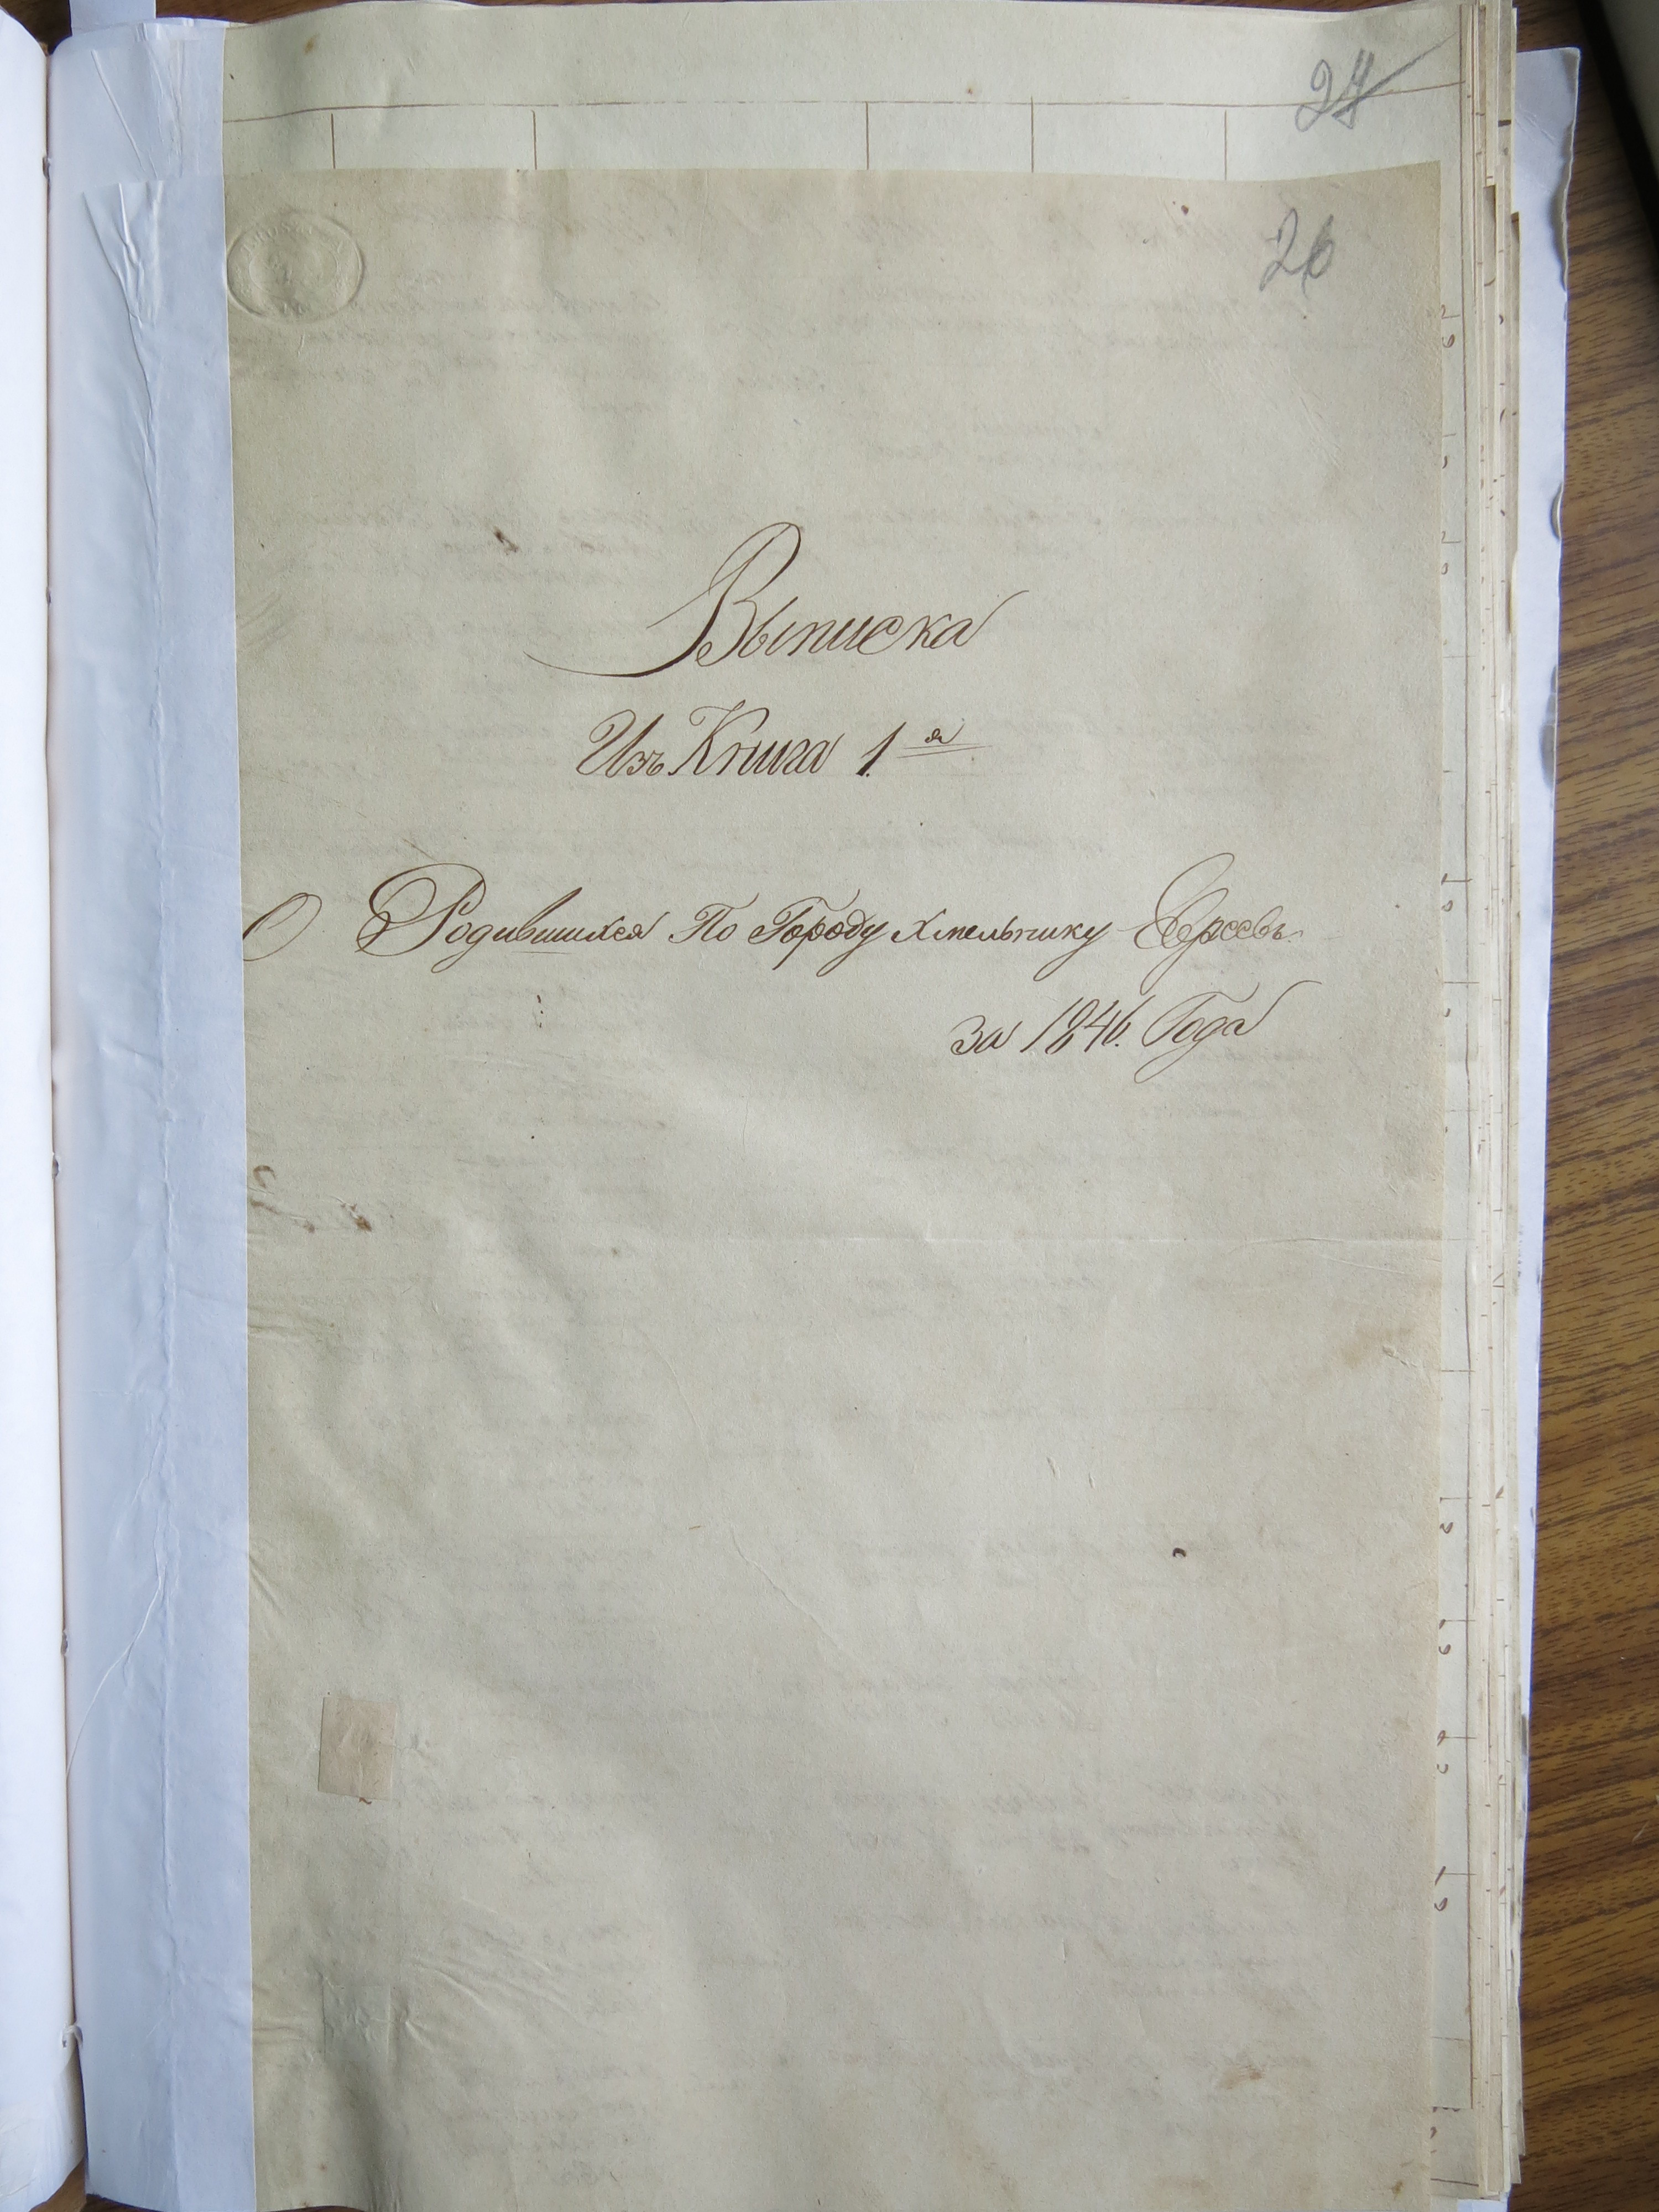 27
26
Выписка
Изъ Книга 1.ая
О Родившихся По Городу Хмельнику Евреевъ
за 1846. Года